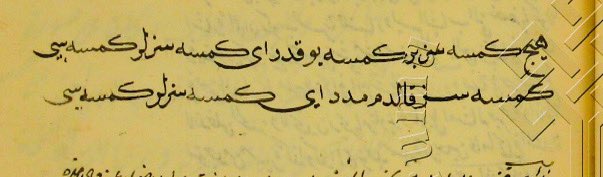 هیچ کمسه سز بر کمسه یوقدر ای کمسه سزلر کمسه سی
کمسه سز قالدم مدد ای کمسه سزلر کمسه سی